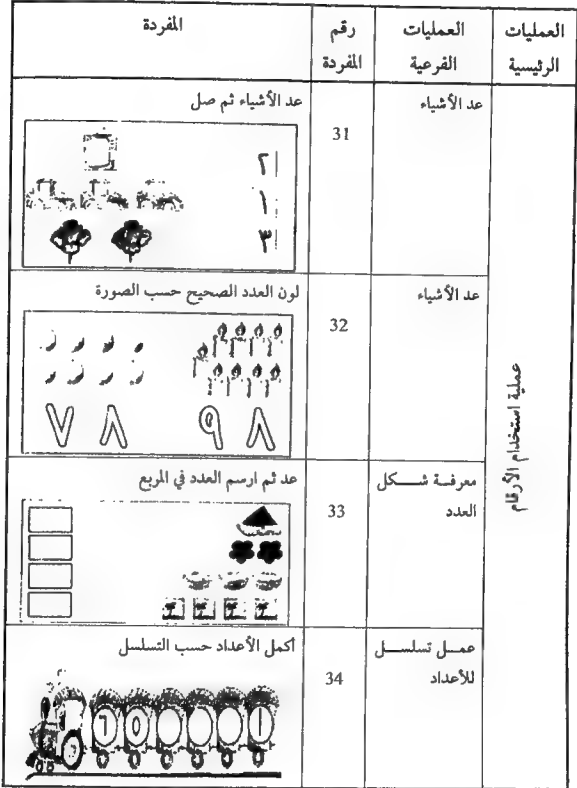 العمليات الرئيسية
العمليات الفرعية
رقم المفردة
المفردة
عملية استخدام الأرقام
عد الأشياء
31
عد الأشياء ثم صل
٢
١
٣
عد الأشياء
32
لون العدد الصحيح حسب الصورة
٧ ٨ ٩ ٨
معرفة شكل العدد
33
عد ثم ارسم العدد في المربع
عمل تسلسل للأعداد
34
أكمل الأعداد حسب التسلسل
٦ ٥ ١